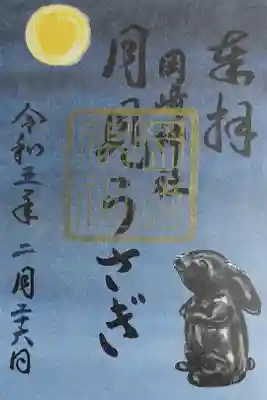 奉拝
岡崎神社
月見うさぎ
令和五年 二月二十六日